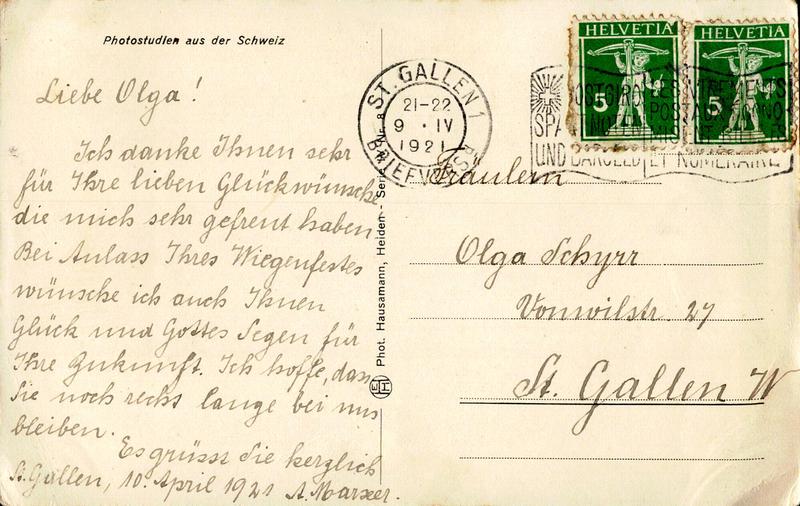 Photostudien aus der Schweiz
Liebe Olga!
Ich danke Ihnen sehr
für Ihre lieben Glückwünsche
die mich sehr gefreut haben.
Bei Anlass Ihres Wiegenfestes
wünsche ich auch Ihnen
Glück und Gottes Segen für
Ihre Zukunft. Ich hoffe, dass
Sie noch recht lange bei uns
bleiben.
Es grüsst Sie herzlich
St. Gallen, 10. April 1921 A. Marxer.
Phot. Hausamann, Heiden - Serie Nr. 8
EH
ST. GALLEN 1
21-22
9 · IV
1921
BRIEFVERS
HELVETIA
5
HELVETIA
5
UND BARGELD
ET NUMÉRAIRE
Fräulein
Olga Schyrr
Vonwilstr. 27
St. Gallen W